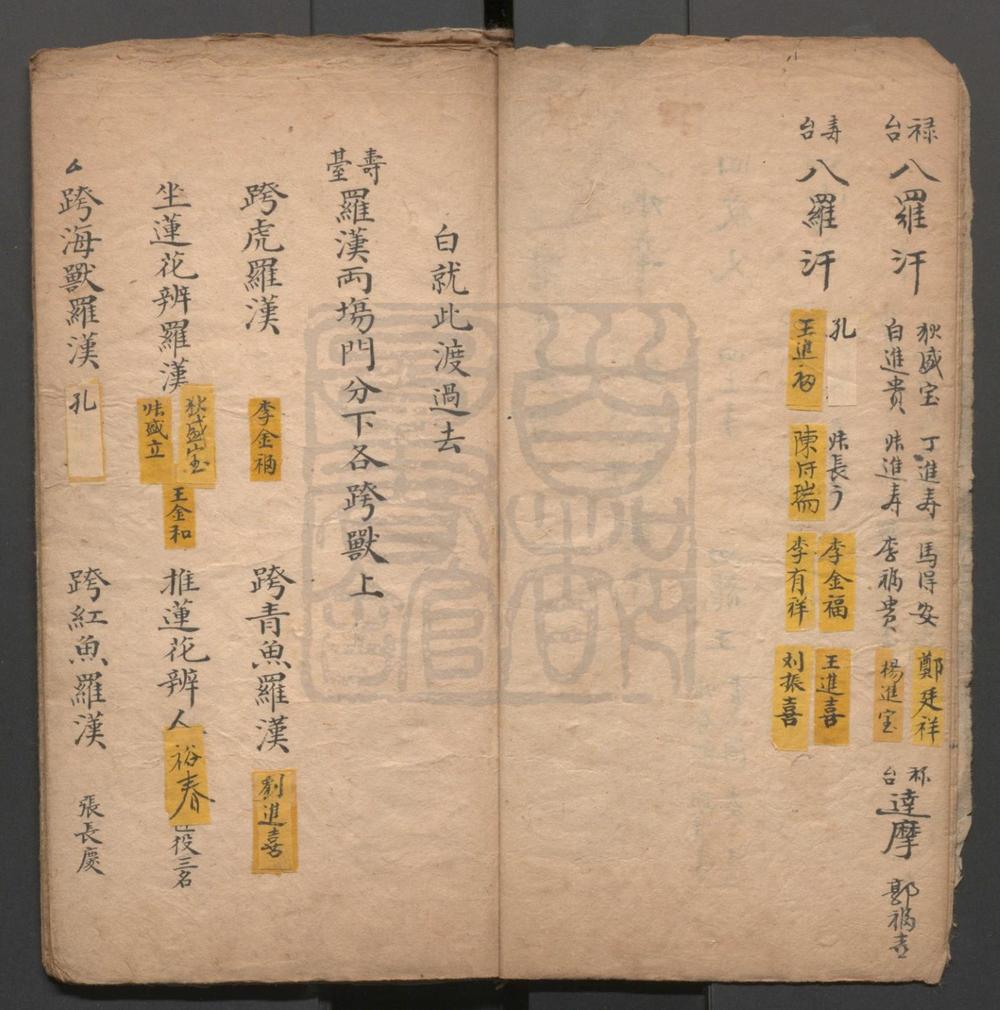 禄台 八羅汗 狄盛宝 丁進寿 馬得安 鄭廷祥
白進貴 進寿 李福貴 楊進宝
禄台 達摩 郭福喜
寿台 八羅汗 孔 長 李金福 王進喜
王進福 陳 瑞 李有祥 刘振喜
白就此渡過去
壽臺 羅漢両塲門分下各跨獸上
跨虎羅漢 李金福 跨青魚羅漢 劉進喜
坐蓮花辨羅漢 狄盛宝 盛立 王金和 推蓮花辨人 裕春 役三名
跨海獸羅漢 孔 跨紅魚羅漢 張長慶